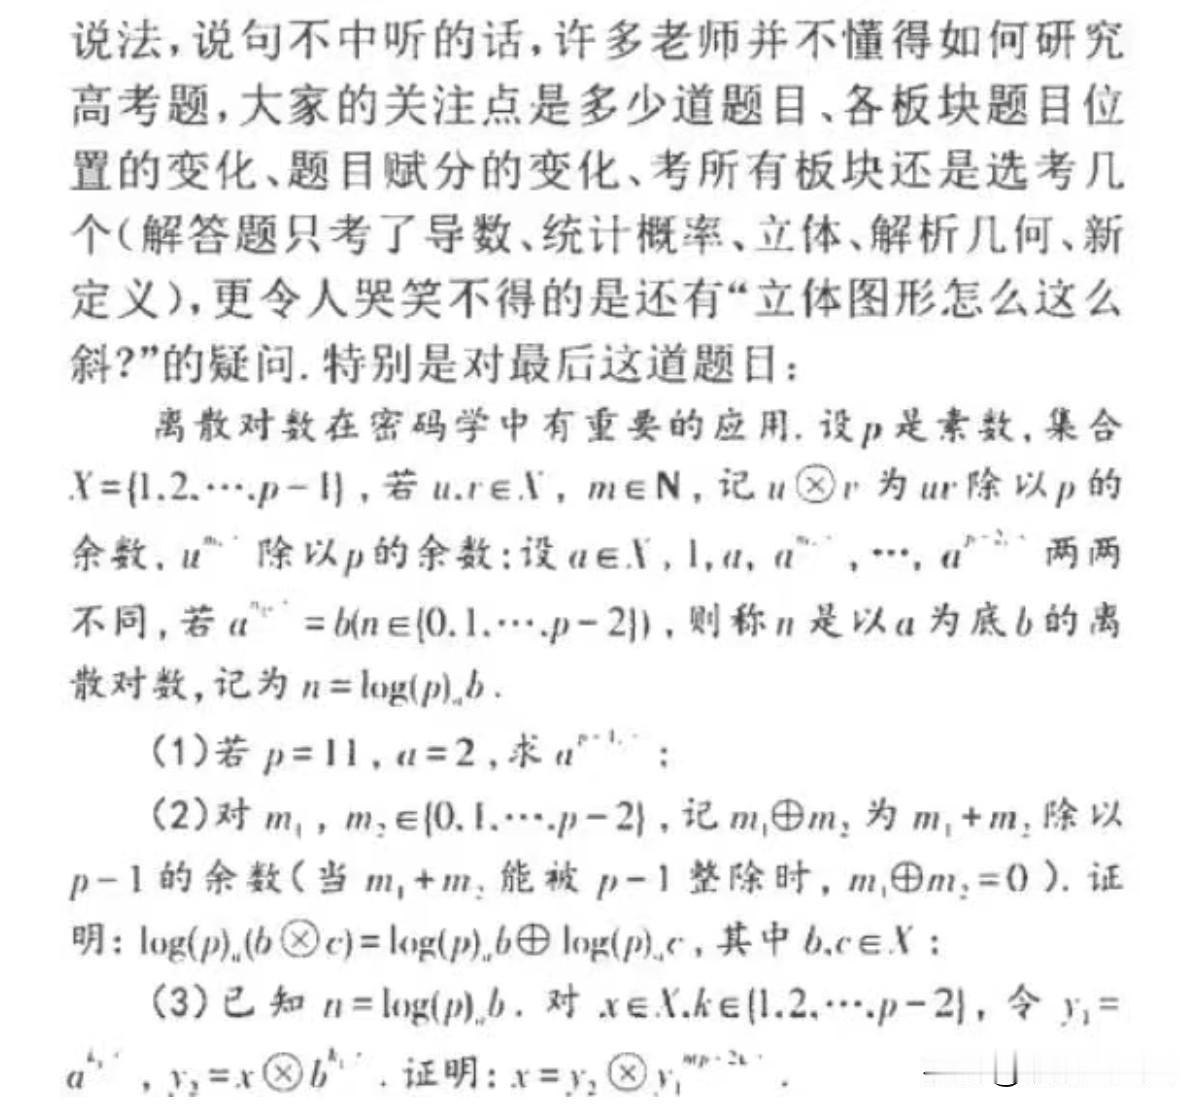 说法,说句不中听的话,许多老师并不懂得如何研究
高考题,大家的关注点是多少道题目、各板块题目位
置的变化、题目赋分的变化、考所有板块还是选考几
个(解答题只考了导数、统计概率、立体、解析几何、新
定义),更令人哭笑不得的是还有“立体图形怎么这么
斜?”的疑问. 特别是对最后这道题目:
离散对数在密码学中有重要的应用. 设p是素数, 集合
X={1,2,⋯,p-1}, 若 u,v∈X, m∈N, 记 u⊗v 为 uv 除以 p 的
余数, u 除以p的余数;设 a∈X, 1, a, a , ⋯, a 两两
不同, 若 a =b(n∈{0,1,⋯,p-2}), 则称n是以a为底b的离
散对数, 记为 n=log(p)ₐb.
(1)若 p=11, a=2, 求 a ;
(2)对 m₁, m₂∈{0,1,⋯,p-2}, 记 m₁⊕m₂ 为 m₁+m₂ 除以
p-1 的余数(当 m₁+m₂ 能被 p-1 整除时, m₁⊕m₂=0). 证
明: log(p)ₐ(b⊗c)=log(p)ₐb⊕log(p)ₐc, 其中 b,c∈X;
(3)已知 n=log(p)ₐb. 对 x∈X,k∈{1,2,⋯,p-2}, 令 y₁=
a , y₂=x⊗b . 证明: x=y₂⊗y₁ .